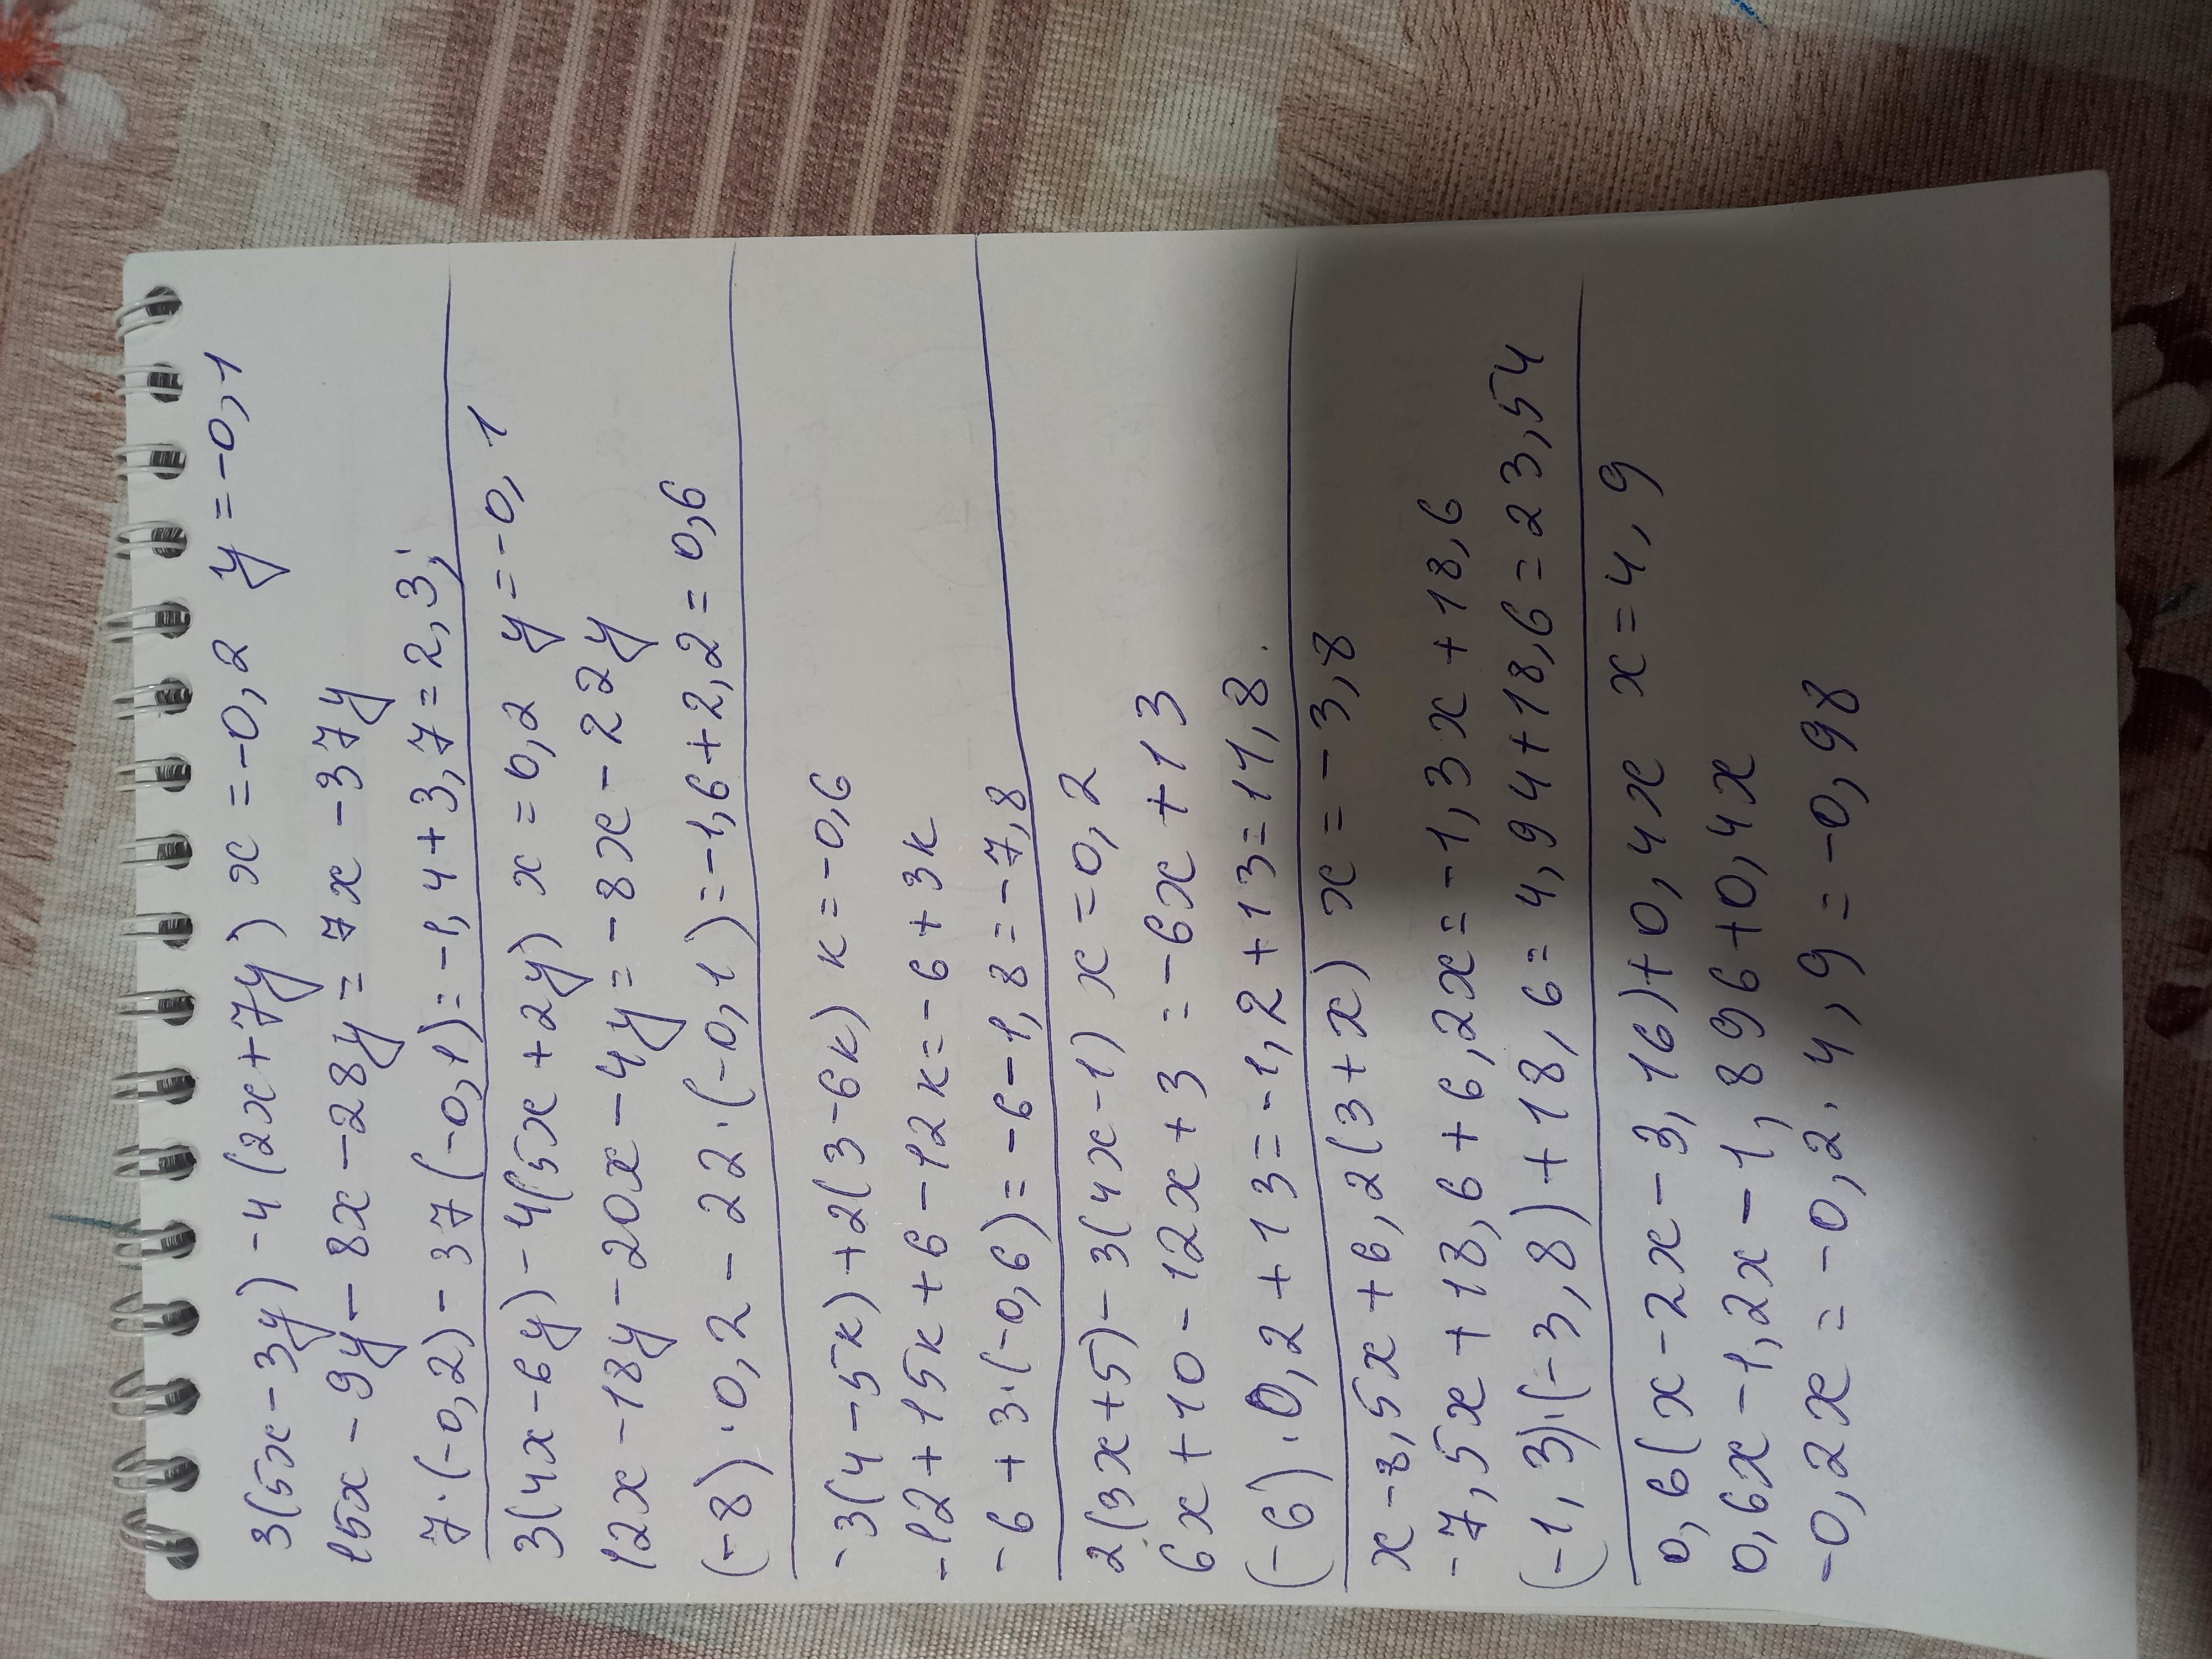 3(5x-3y)-4(2x+7y) x=-0,2 y=-0,1
15x-9y-8x-28y=7x-37y
7·(-0,2)-37(-0,1)=-1,4+3,7=2,3;
3(4x-6y)-4(5x+2y) x=0,2 y=-0,1
12x-18y-20x-4y=-8x-22y
(-8)·0,2-22·(-0,1)=-1,6+2,2=0,6
-3(4-5к)+2(3-6к) к=-0,6
-12+15к+6-12к=-6+3к
-6+3·(-0,6)=-6-1,8=-7,8
2(3x+5)-3(4x-1) x=0,2
6x+10-12x+3=-6x+13
(-6)·0,2+13=-1,2+13=11,8.
x-8,5x+6,2(3+x) x=-3,8
-7,5x+18,6+6,2x=-1,3x+18,6
(-1,3)·(-3,8)+18,6=4,94+18,6=23,54
0,6(x-2x-3,16)+0,4x x=4,9
0,6x-1,2x-1,896+0,4x
-0,2x=-0,2·4,9=-0,98